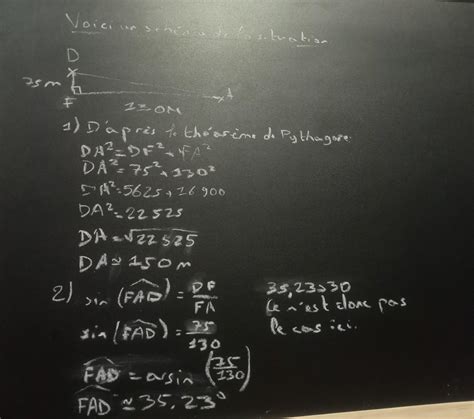 Voici un schéma de la situation
D
75m
F
130M
A
1) D'après le théorème de Pythagore:
DA²=DF²+FA²
DA²=75²+130²
DA²=5625+16900
DA²=22525
DA=√22525
DA≈150m
2) sin(FAD)=DF/FA
sin(FAD)=75/130
FAD=arsin(75/130)
FAD≈35,23°
35,23>30
Ce n'est donc pas
le cas ici.